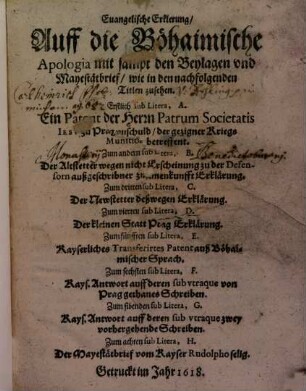 Euangelische Erklerung/
Auff die Böhaimische
Apologia mit sampt den Beylagen vnd
Mayestätbrief/ wie in den nachfolgenden
Titlen zusehen.
Erstlich sub Litera, A.
Ein Patent der Herrn Patrum Societatis
IESV zu Prag vnschuld/ der gezigner Kriegs
Munition betreffent.
Zum andern sub Litera, B.
Der Altstetter wegen nicht Erscheinung zu der Defen-
sorn außgeschribner zusamenkunfft Erklärung.
Zum dritten sub Litera, C.
Der Newstetter deßwegen Erklärung.
Zum vierten sub Litera, D.
Der kleinen Statt Prag Erklärung.
Zum fünfften sub Litera, E.
Kayserliches Transferirtes Patent auß Böhai-
mischer Sprach.
Zum sechsten sub Litera, F.
Kays. Antwort auff deren sub vtraque von
Prag gethanes Schreiben.
Zum sibenden sub Litera, G.
Kays. Antwort auff deren sub vtraque zwey
vorhergehende Schreiben.
Zum achten sub Litera, H.
Der Mayestätbrief vom Kayser Rudolpho selig.
Getruckt im Jahr 1618.